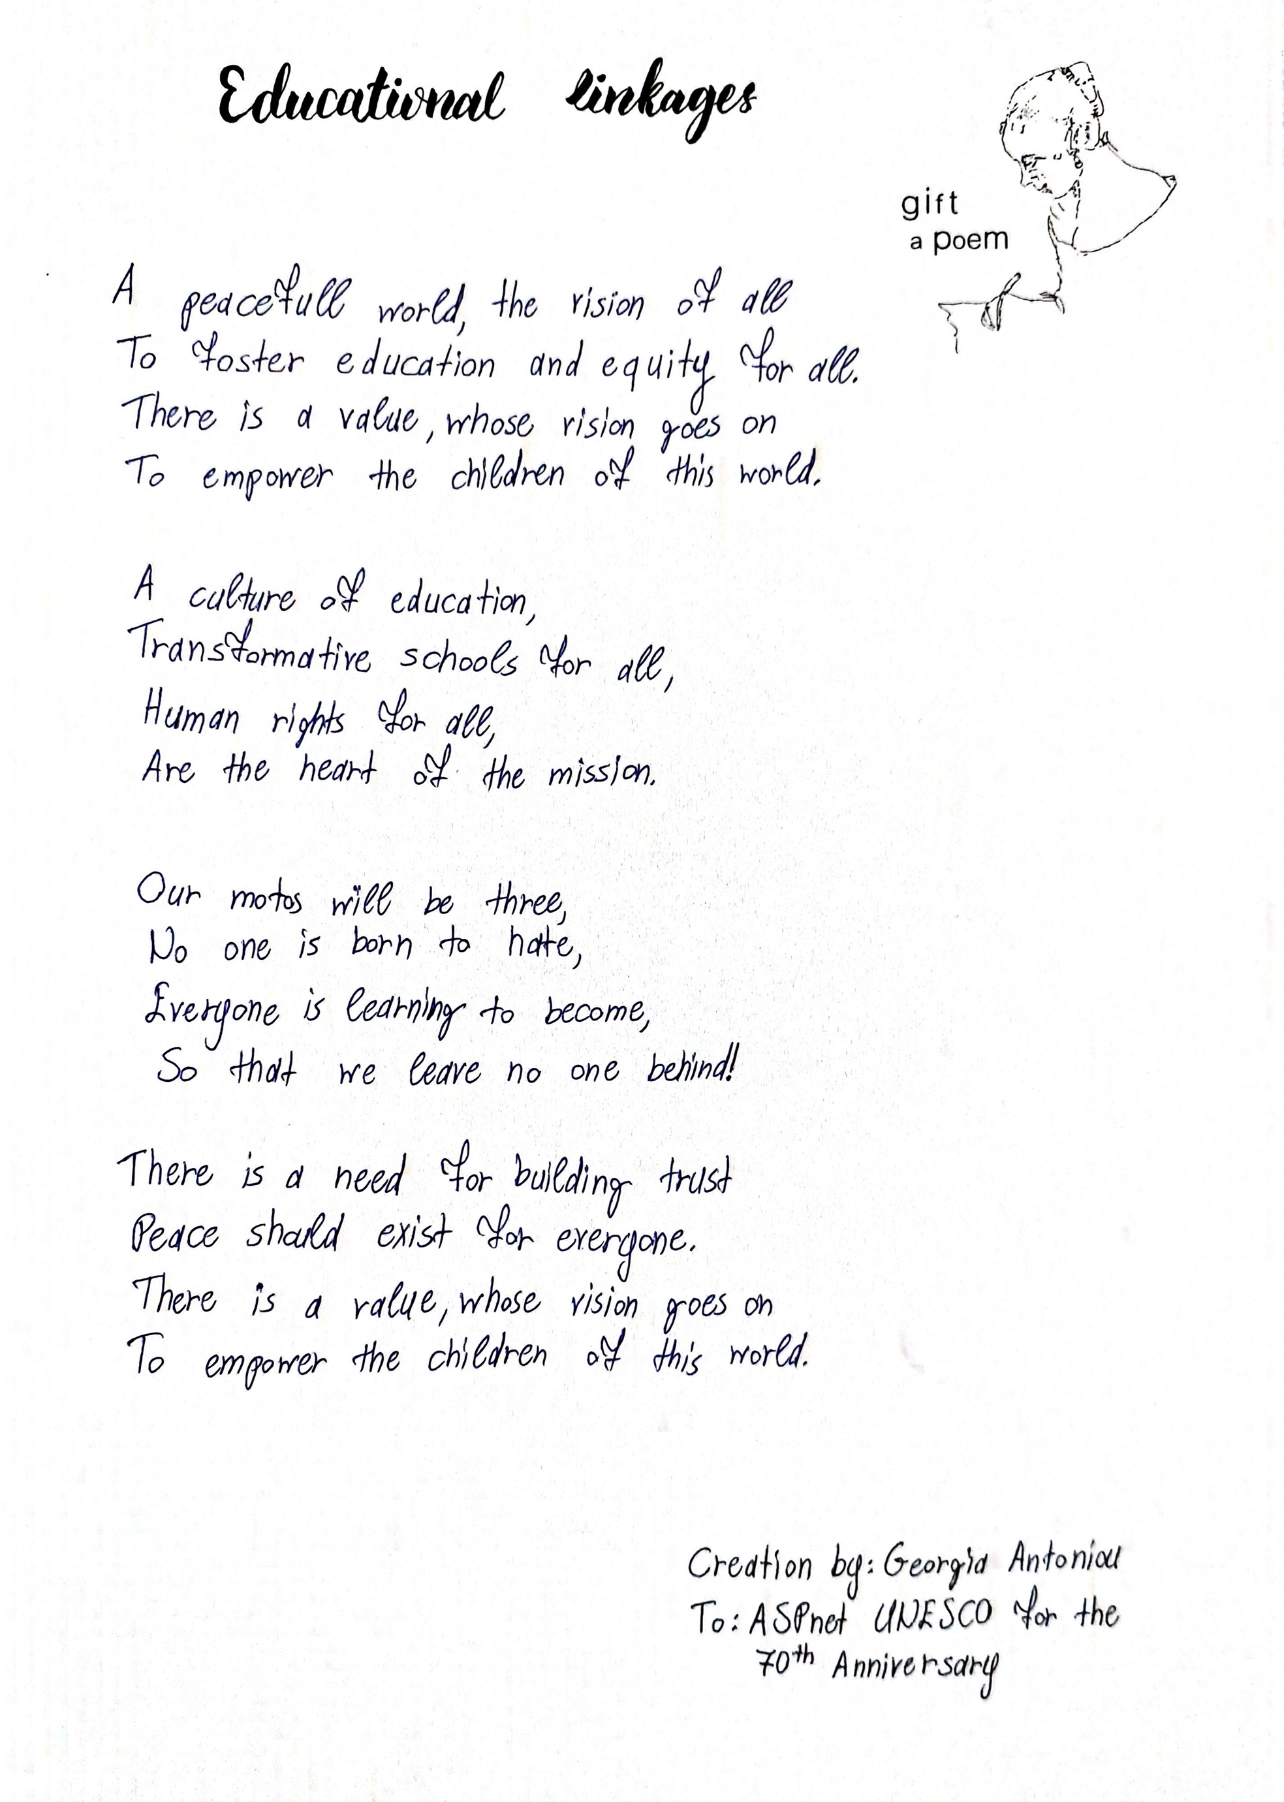 Educational linkages
gift
a poem
A peacefull world, the vision of all
To foster education and equity for all.
There is a value, whose vision goes on
To empower the children of this world.
A culture of education,
Transformative schools for all,
Human rights for all,
Are the heart of the mission.
Our motos will be three,
No one is born to hate,
Everyone is learning to become,
So that we leave no one behind!
There is a need for building trust
Peace should exist for everyone.
There is a value, whose vision goes on
To empower the children of this world.
Creation by: Georgia Antoniou
To: ASPnet UNESCO for the
70th Anniversary